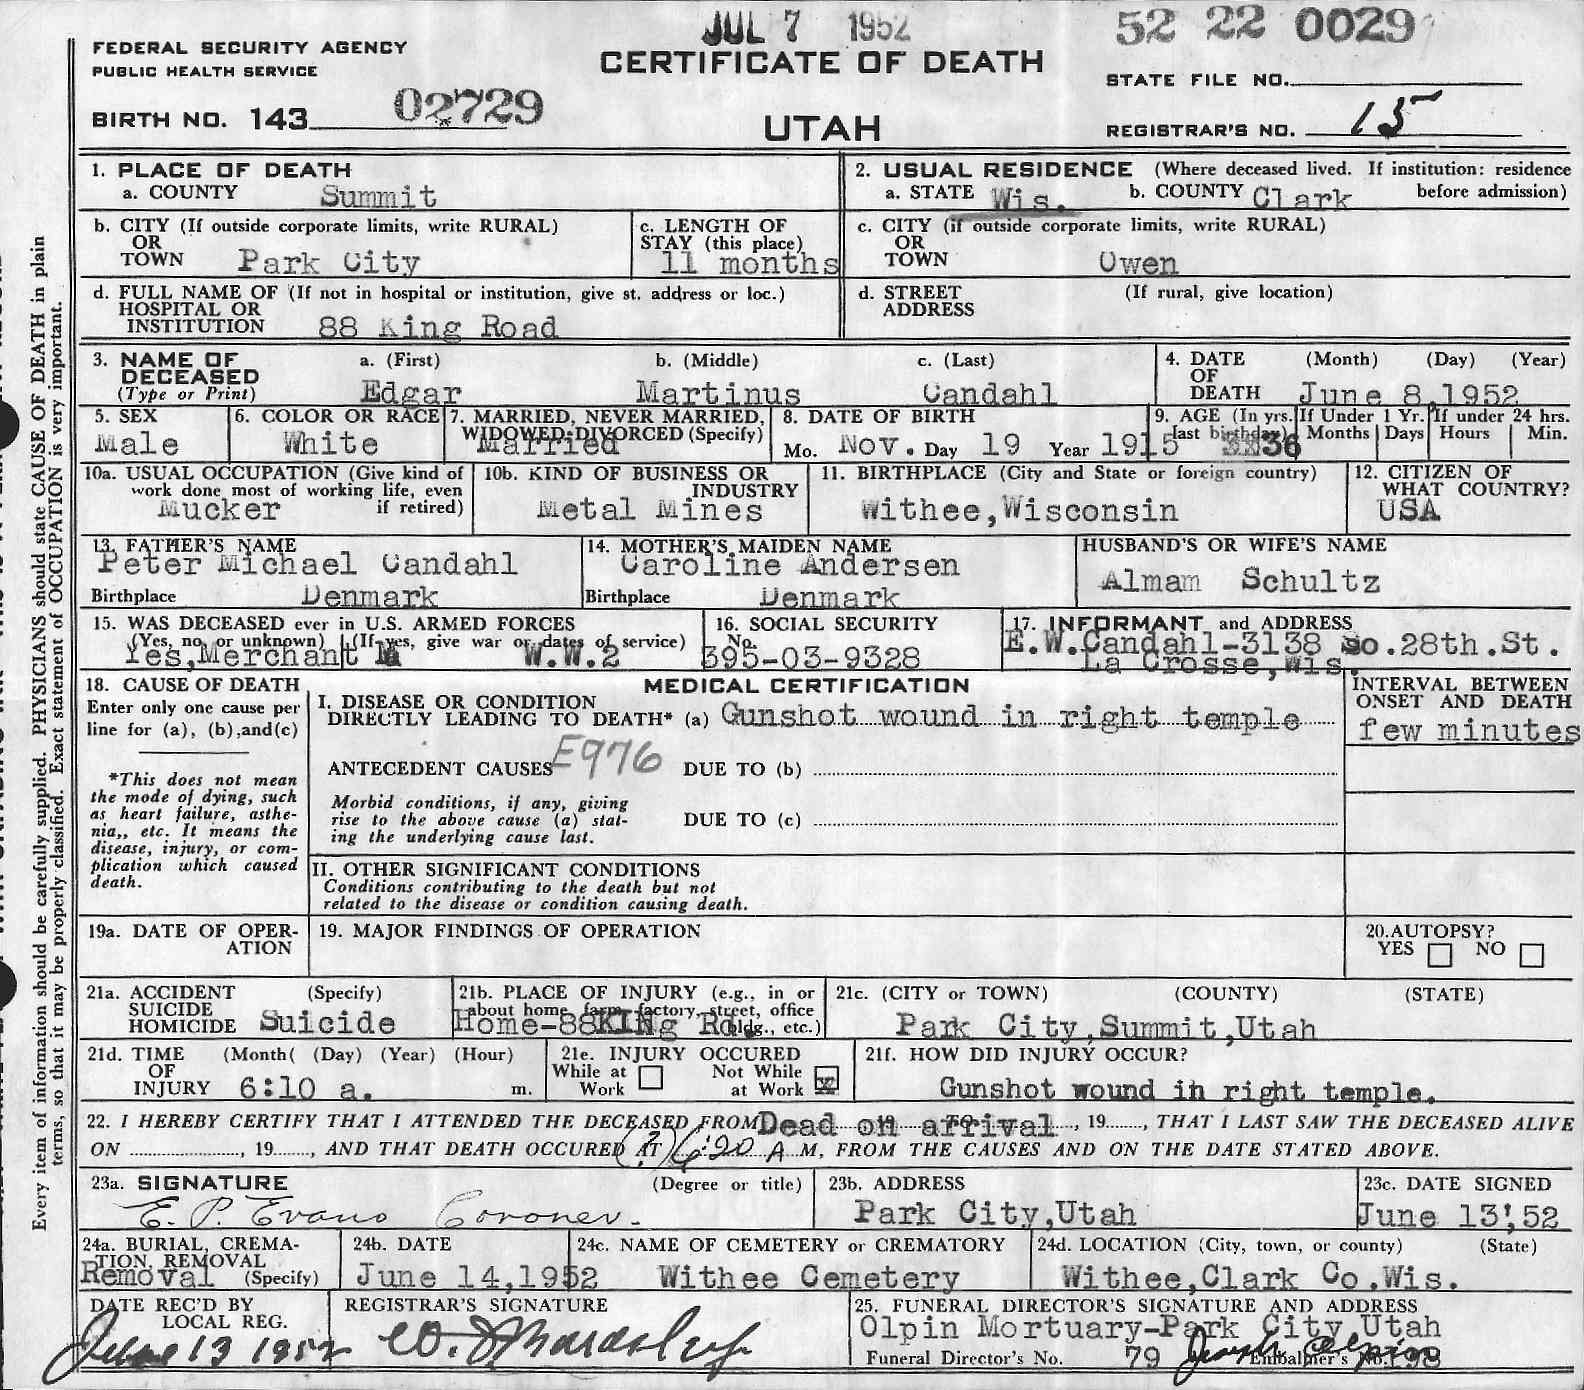 JUL 7 1952
52 22 0029
FEDERAL SECURITY AGENCY
PUBLIC HEALTH SERVICE
CERTIFICATE OF DEATH
STATE FILE NO.
BIRTH NO. 143 02729
UTAH
REGISTRAR'S NO. 15
Every item of information should be carefully supplied. PHYSICIANS should state CAUSE OF DEATH in plain
terms, so that it may be properly classified. Exact statement of OCCUPATION is very important.
1. PLACE OF DEATH
a. COUNTY Summit
2. USUAL RESIDENCE (Where deceased lived. If institution: residence
a. STATE Wis. b. COUNTY Clark before admission)
b. CITY (If outside corporate limits, write RURAL)
OR
TOWN Park City
c. LENGTH OF
STAY (this place)
11 months
c. CITY (if outside corporate limits, write RURAL)
OR
TOWN Owen
d. FULL NAME OF (If not in hospital or institution, give st. address or loc.)
HOSPITAL OR
INSTITUTION 88 King Road
d. STREET (If rural, give location)
ADDRESS
3. NAME OF a. (First) b. (Middle) c. (Last)
DECEASED
(Type or Print) Edgar Martinus Candahl
4. DATE (Month) (Day) (Year)
OF
DEATH June 8,1952
5. SEX
Male
6. COLOR OR RACE
White
7. MARRIED, NEVER MARRIED,
WIDOWED, DIVORCED (Specify)
Married
8. DATE OF BIRTH
Mo. Nov. Day 19 Year 1915
9. AGE (In yrs.
last birthday)
36
If Under 1 Yr.
Months Days
If under 24 hrs.
Hours Min.
10a. USUAL OCCUPATION (Give kind of
work done most of working life, even
if retired)
Mucker
10b. KIND OF BUSINESS OR
INDUSTRY
Metal Mines
11. BIRTHPLACE (City and State or foreign country)
Withee,Wisconsin
12. CITIZEN OF
WHAT COUNTRY?
USA
13. FATHER'S NAME
Peter Michael Candahl
Birthplace Denmark
14. MOTHER'S MAIDEN NAME
Caroline Andersen
Birthplace Denmark
HUSBAND'S OR WIFE'S NAME
Almam Schultz
15. WAS DECEASED ever in U.S. ARMED FORCES
(Yes, no, or unknown) (If yes, give war or dates of service)
Yes,Merchant W.W.2
16. SOCIAL SECURITY
No.
395-03-9328
17. INFORMANT and ADDRESS
E.W.Candahl-3138 So.28th.St.
La Crosse,Wis.
18. CAUSE OF DEATH
Enter only one cause per
line for (a), (b),and(c)
*This does not mean
the mode of dying, such
as heart failure, asthe-
nia,, etc. It means the
disease, injury, or com-
plication which caused
death.
MEDICAL CERTIFICATION
I. DISEASE OR CONDITION
DIRECTLY LEADING TO DEATH* (a) Gunshot wound in right temple
E976
ANTECEDENT CAUSES DUE TO (b)
Morbid conditions, if any, giving
rise to the above cause (a) stat-
ing the underlying cause last.
DUE TO (c)
II. OTHER SIGNIFICANT CONDITIONS
Conditions contributing to the death but not
related to the disease or condition causing death.
INTERVAL BETWEEN
ONSET AND DEATH
few minutes
19a. DATE OF OPER-
ATION
19. MAJOR FINDINGS OF OPERATION
20.AUTOPSY?
YES NO
21a. ACCIDENT (Specify)
SUICIDE
HOMICIDE Suicide
21b. PLACE OF INJURY (e.g., in or
about home, farm, factory, street, office
bldg., etc.)
Home-88KINg Rd.
21c. (CITY or TOWN) (COUNTY) (STATE)
Park City,Summit,Utah
21d. TIME (Month( (Day) (Year) (Hour)
OF
INJURY 6:10 a. m.
21e. INJURY OCCURED
While at Work
Not While at Work x
21f. HOW DID INJURY OCCUR?
Gunshot wound in right temple.
22. I HEREBY CERTIFY THAT I ATTENDED THE DECEASED FROM Dead on arrival, 19, THAT I LAST SAW THE DECEASED ALIVE
ON, 19, AND THAT DEATH OCCURED AT (?) 6:20 A M, FROM THE CAUSES AND ON THE DATE STATED ABOVE.
23a. SIGNATURE (Degree or title)
E. P. Evans Coroner.
23b. ADDRESS
Park City,Utah
23c. DATE SIGNED
June 13',52
24a. BURIAL, CREMA-
TION, REMOVAL
Removal (Specify)
24b. DATE
June 14,1952
24c. NAME OF CEMETERY or CREMATORY
Withee Cemetery
24d. LOCATION (City, town, or county) (State)
Withee,Clark Co.Wis.
DATE REC'D BY
LOCAL REG.
June 13 1952
REGISTRAR'S SIGNATURE
25. FUNERAL DIRECTOR'S SIGNATURE AND ADDRESS
Olpin Mortuary-Park City,Utah
Funeral Director's No. 79 Embalmer's No. 198